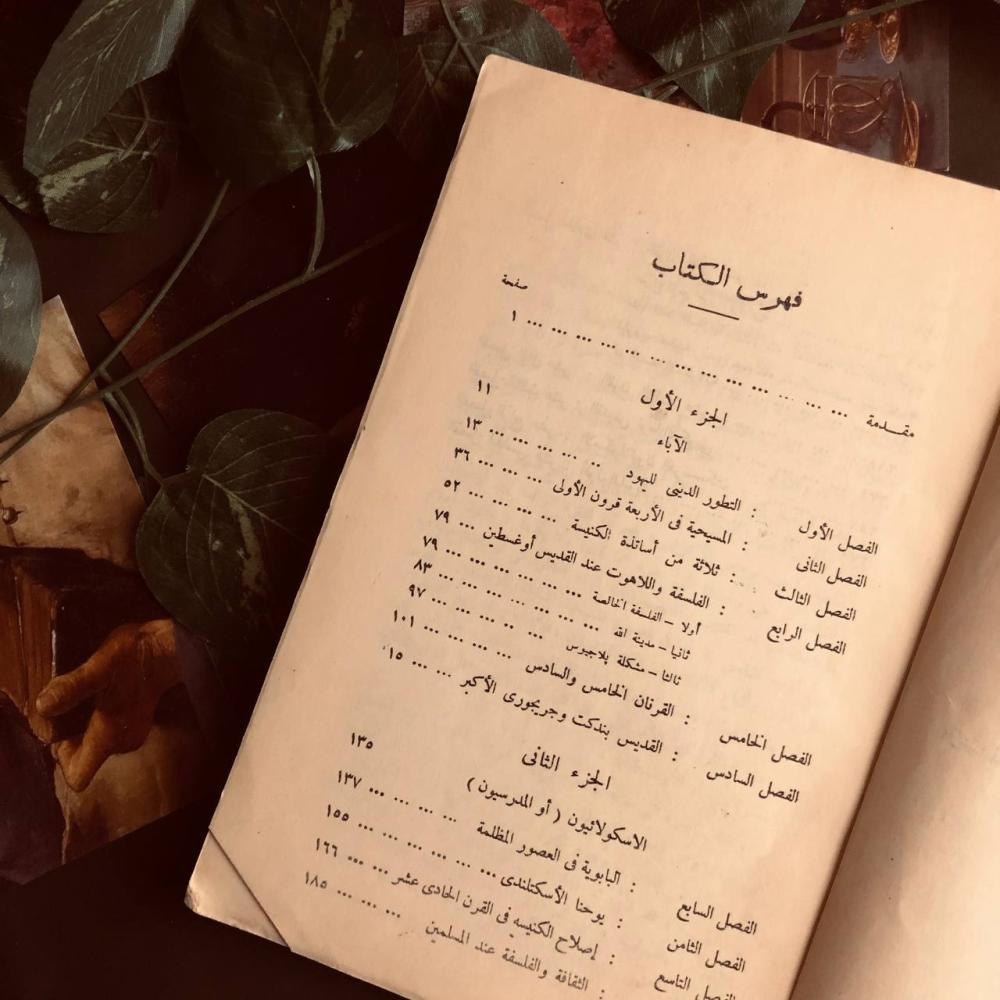 فهرس الكتاب
صفحة
مقدمة ... ... ... ... ... ... ... ... ... ... ... ... ... ١
الجزء الأول ١١
الآباء
الفصل الأول : التطور الدينى لليهود ... ... ... ... ... ١٣
الفصل الثانى : المسيحية فى الأربعة قرون الأولى ... ... ... ... ٣٦
الفصل الثالث : ثلاثة من أساتذة الكنيسة ... ... ... ... ... ٥٢
الفصل الرابع : الفلسفة واللاهوت عند القديس أوغسطين ... ٧٩
أولا – الفلسفة الخالصة ... ... ... ... ... ... ٧٩
ثانيا – مدينة الله ... ... ... ... ... ... ... ٨٣
ثالثا – مشكلة پلاجيوس ... ... ... ... ... ... ٩٧
الفصل الخامس : القرنان الخامس والسادس ... ... ... ... ... ١٠١
الفصل السادس : القديس بندكت وجريجورى الأكبر ... ...
الجزء الثانى ١٣٥
الاسكولائيون ( أو المدرسيون )
الفصل السابع : البابوية فى العصور المظلمة ... ... ... ... ١٣٧
الفصل الثامن : يوحنا الأسكتلندى ... ... ... ... ... ... ١٥٥
الفصل التاسع : إصلاح الكنيسه فى القرن الحادى عشر ... ... ١٦٦
: الثقافة والفلسفة عند المسلمين ... ... ... ١٨٥